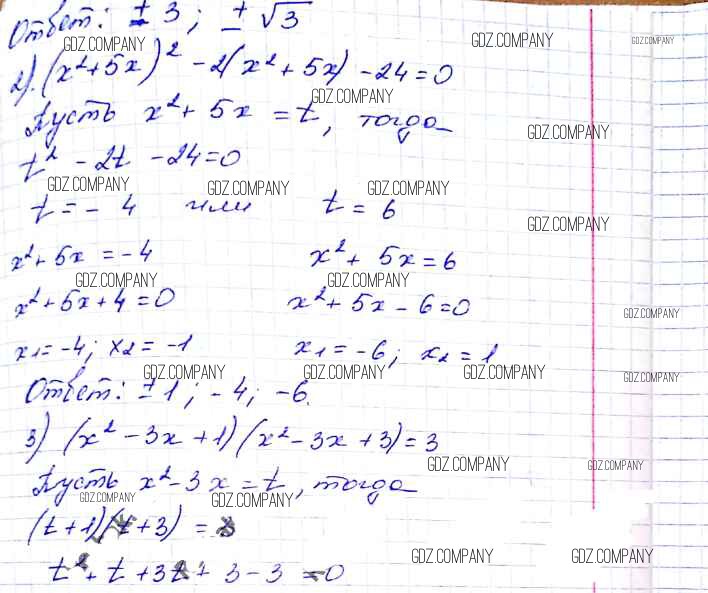 Ответ: ± 3; ± √3
GDZ.COMPANY GDZ.COMPANY GDZ.COMPANY
2). (x²+5x)² - 2(x²+5x) - 24=0
GDZ.COMPANY
Пусть x²+5x=t, тогда
GDZ.COMPANY
t² - 2t - 24=0
GDZ.COMPANY GDZ.COMPANY GDZ.COMPANY
t = - 4 или t = 6
GDZ.COMPANY
x²+5x=-4 x²+5x=6
GDZ.COMPANY GDZ.COMPANY
x²+5x+4=0 x²+5x-6=0
GDZ.COMPANY
x1=-4; x2=-1 x1=-6; x2=1
GDZ.COMPANY GDZ.COMPANY GDZ.COMPANY GDZ.COMPANY
Ответ: ±1; -4; -6.
3) (x²-3x+1)(x²-3x+3)=3
GDZ.COMPANY GDZ.COMPANY
Пусть x²-3x=t, тогда
GDZ.COMPANY GDZ.COMPANY
(t+1)(t+3) = 3
t²+t+3t+3-3=0
GDZ.COMPANY GDZ.COMPANY